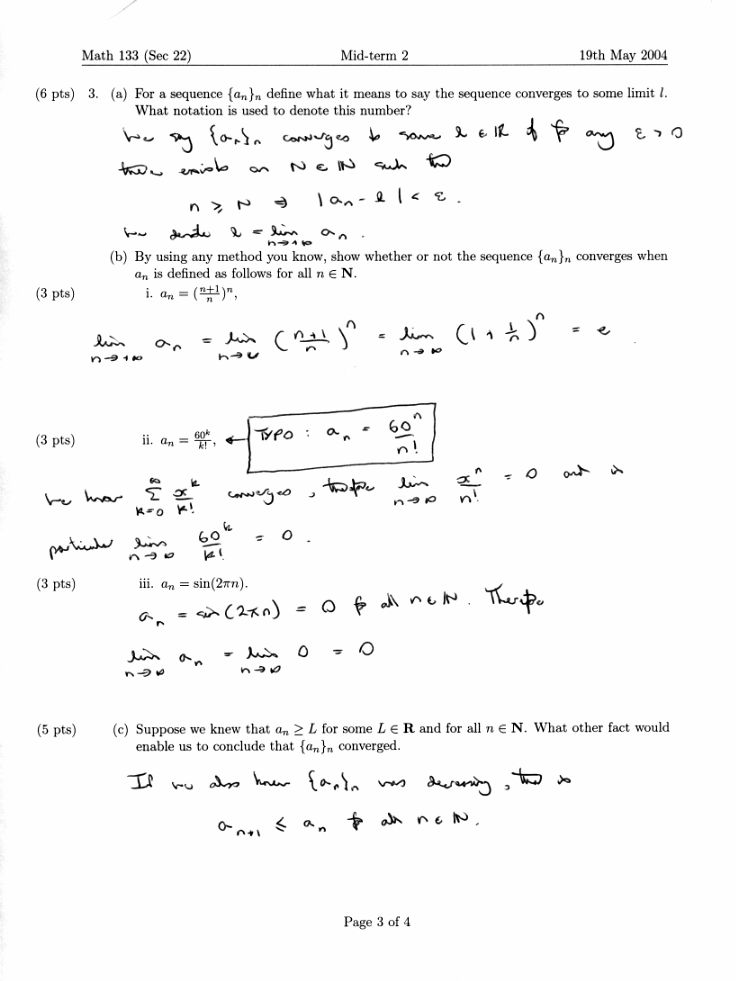 Math 133 (Sec 22) Mid-term 2 19th May 2004
(6 pts) 3. (a) For a sequence {aₙ}ₙ define what it means to say the sequence converges to some limit l.
What notation is used to denote this number?
We say {aₙ}ₙ converges to some l ∈ ℝ if for any ε > 0
there exists an N ∈ ℕ such that
n ≥ N ⇒ |aₙ - l| < ε.
We denote l = lim_{n→+∞} aₙ.
(b) By using any method you know, show whether or not the sequence {aₙ}ₙ converges when
aₙ is defined as follows for all n ∈ N.
(3 pts) i. aₙ = ((n+1)/n)ⁿ,
lim_{n→+∞} aₙ = lim_{n→∞} ((n+1)/n)ⁿ = lim_{n→∞} (1 + 1/n)ⁿ = e
(3 pts) ii. aₙ = 60ᵏ/k!, ← TYPO : aₙ = 60ⁿ/n!
We know ∑_{k=0}^{∞} xᵏ/k! converges, therefore lim_{n→∞} xⁿ/n! = 0 and in
particular lim_{n→∞} 60ᵏ/k! = 0.
(3 pts) iii. aₙ = sin(2πn).
aₙ = sin(2πn) = 0 for all n ∈ ℕ. Therefore
lim_{n→∞} aₙ = lim_{n→∞} 0 = 0
(5 pts) (c) Suppose we knew that aₙ ≥ L for some L ∈ R and for all n ∈ N. What other fact would
enable us to conclude that {aₙ}ₙ converged.
If we also knew {aₙ}ₙ was decreasing, that is
aₙ₊₁ ≤ aₙ for all n ∈ ℕ.
Page 3 of 4